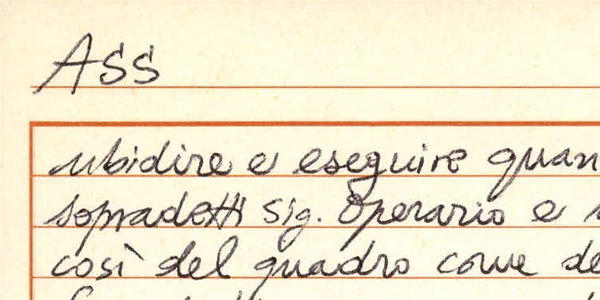 Ass
ubidire e eseguire quan
sopradetti sig. Operario e
così del quadro come de